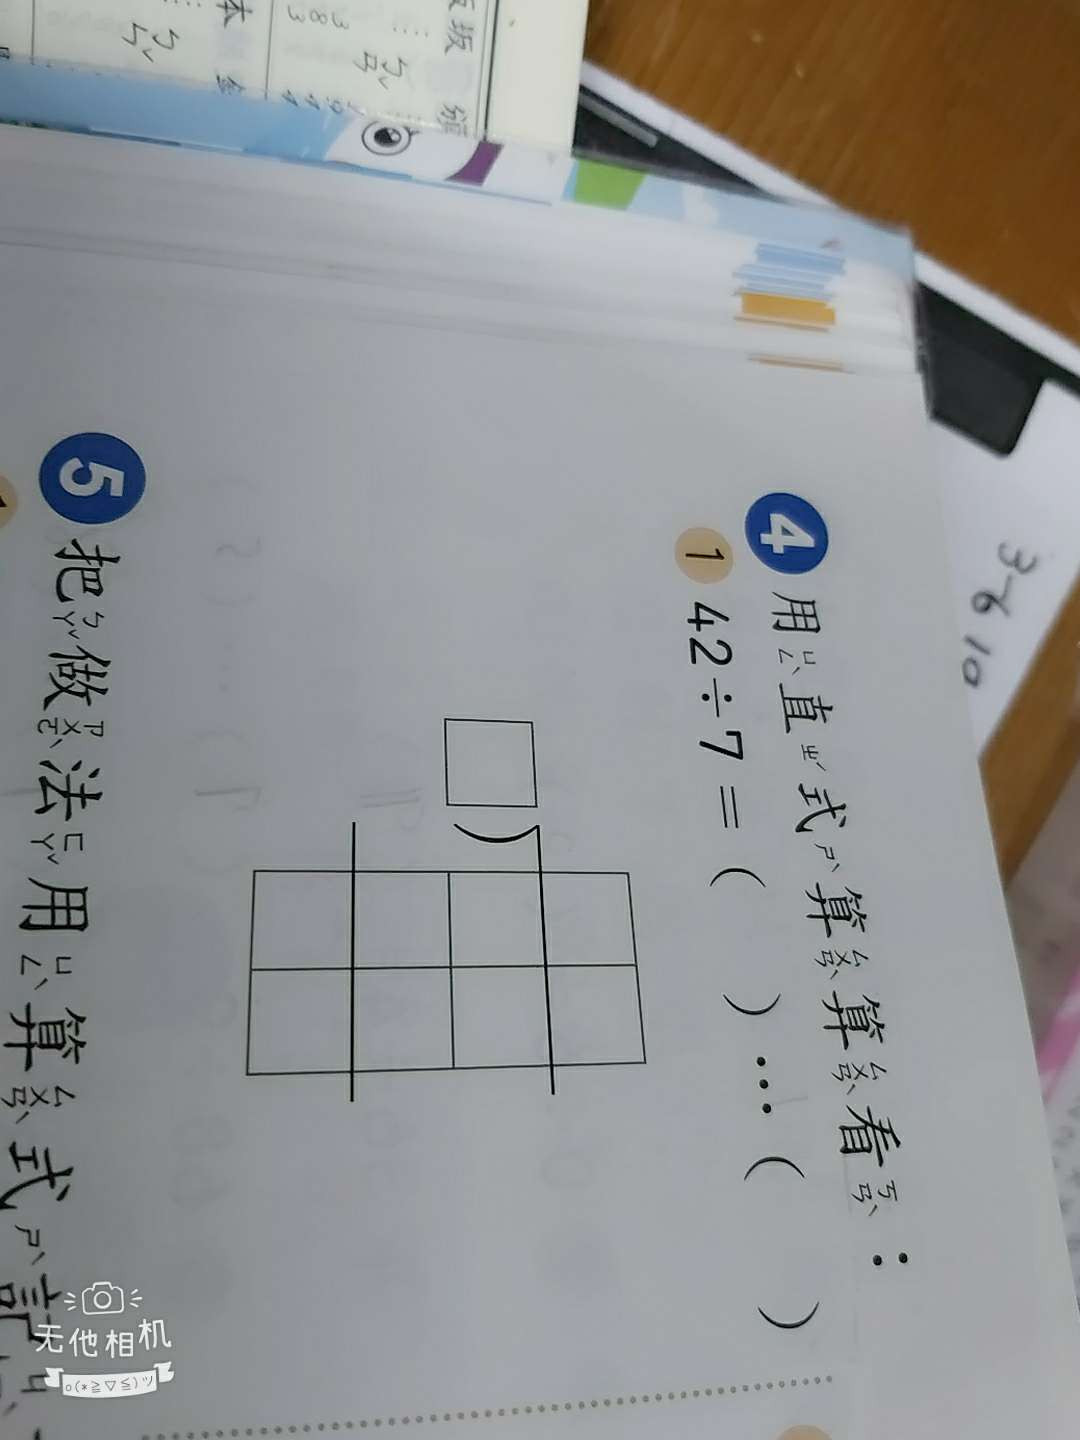 4 用ㄩㄥˋ直ㄓˊ式ㄕˋ算ㄙㄨㄢˋ算ㄙㄨㄢˋ看ㄎㄢˋ：
1 42÷7＝( )…( )
5 把ㄅㄚˇ做ㄗㄨㄛˋ法ㄈㄚˇ用ㄩㄥˋ算ㄙㄨㄢˋ式ㄕˋ記
3-6 10
383
本
无他相机
o(*≧▽≦)ツ